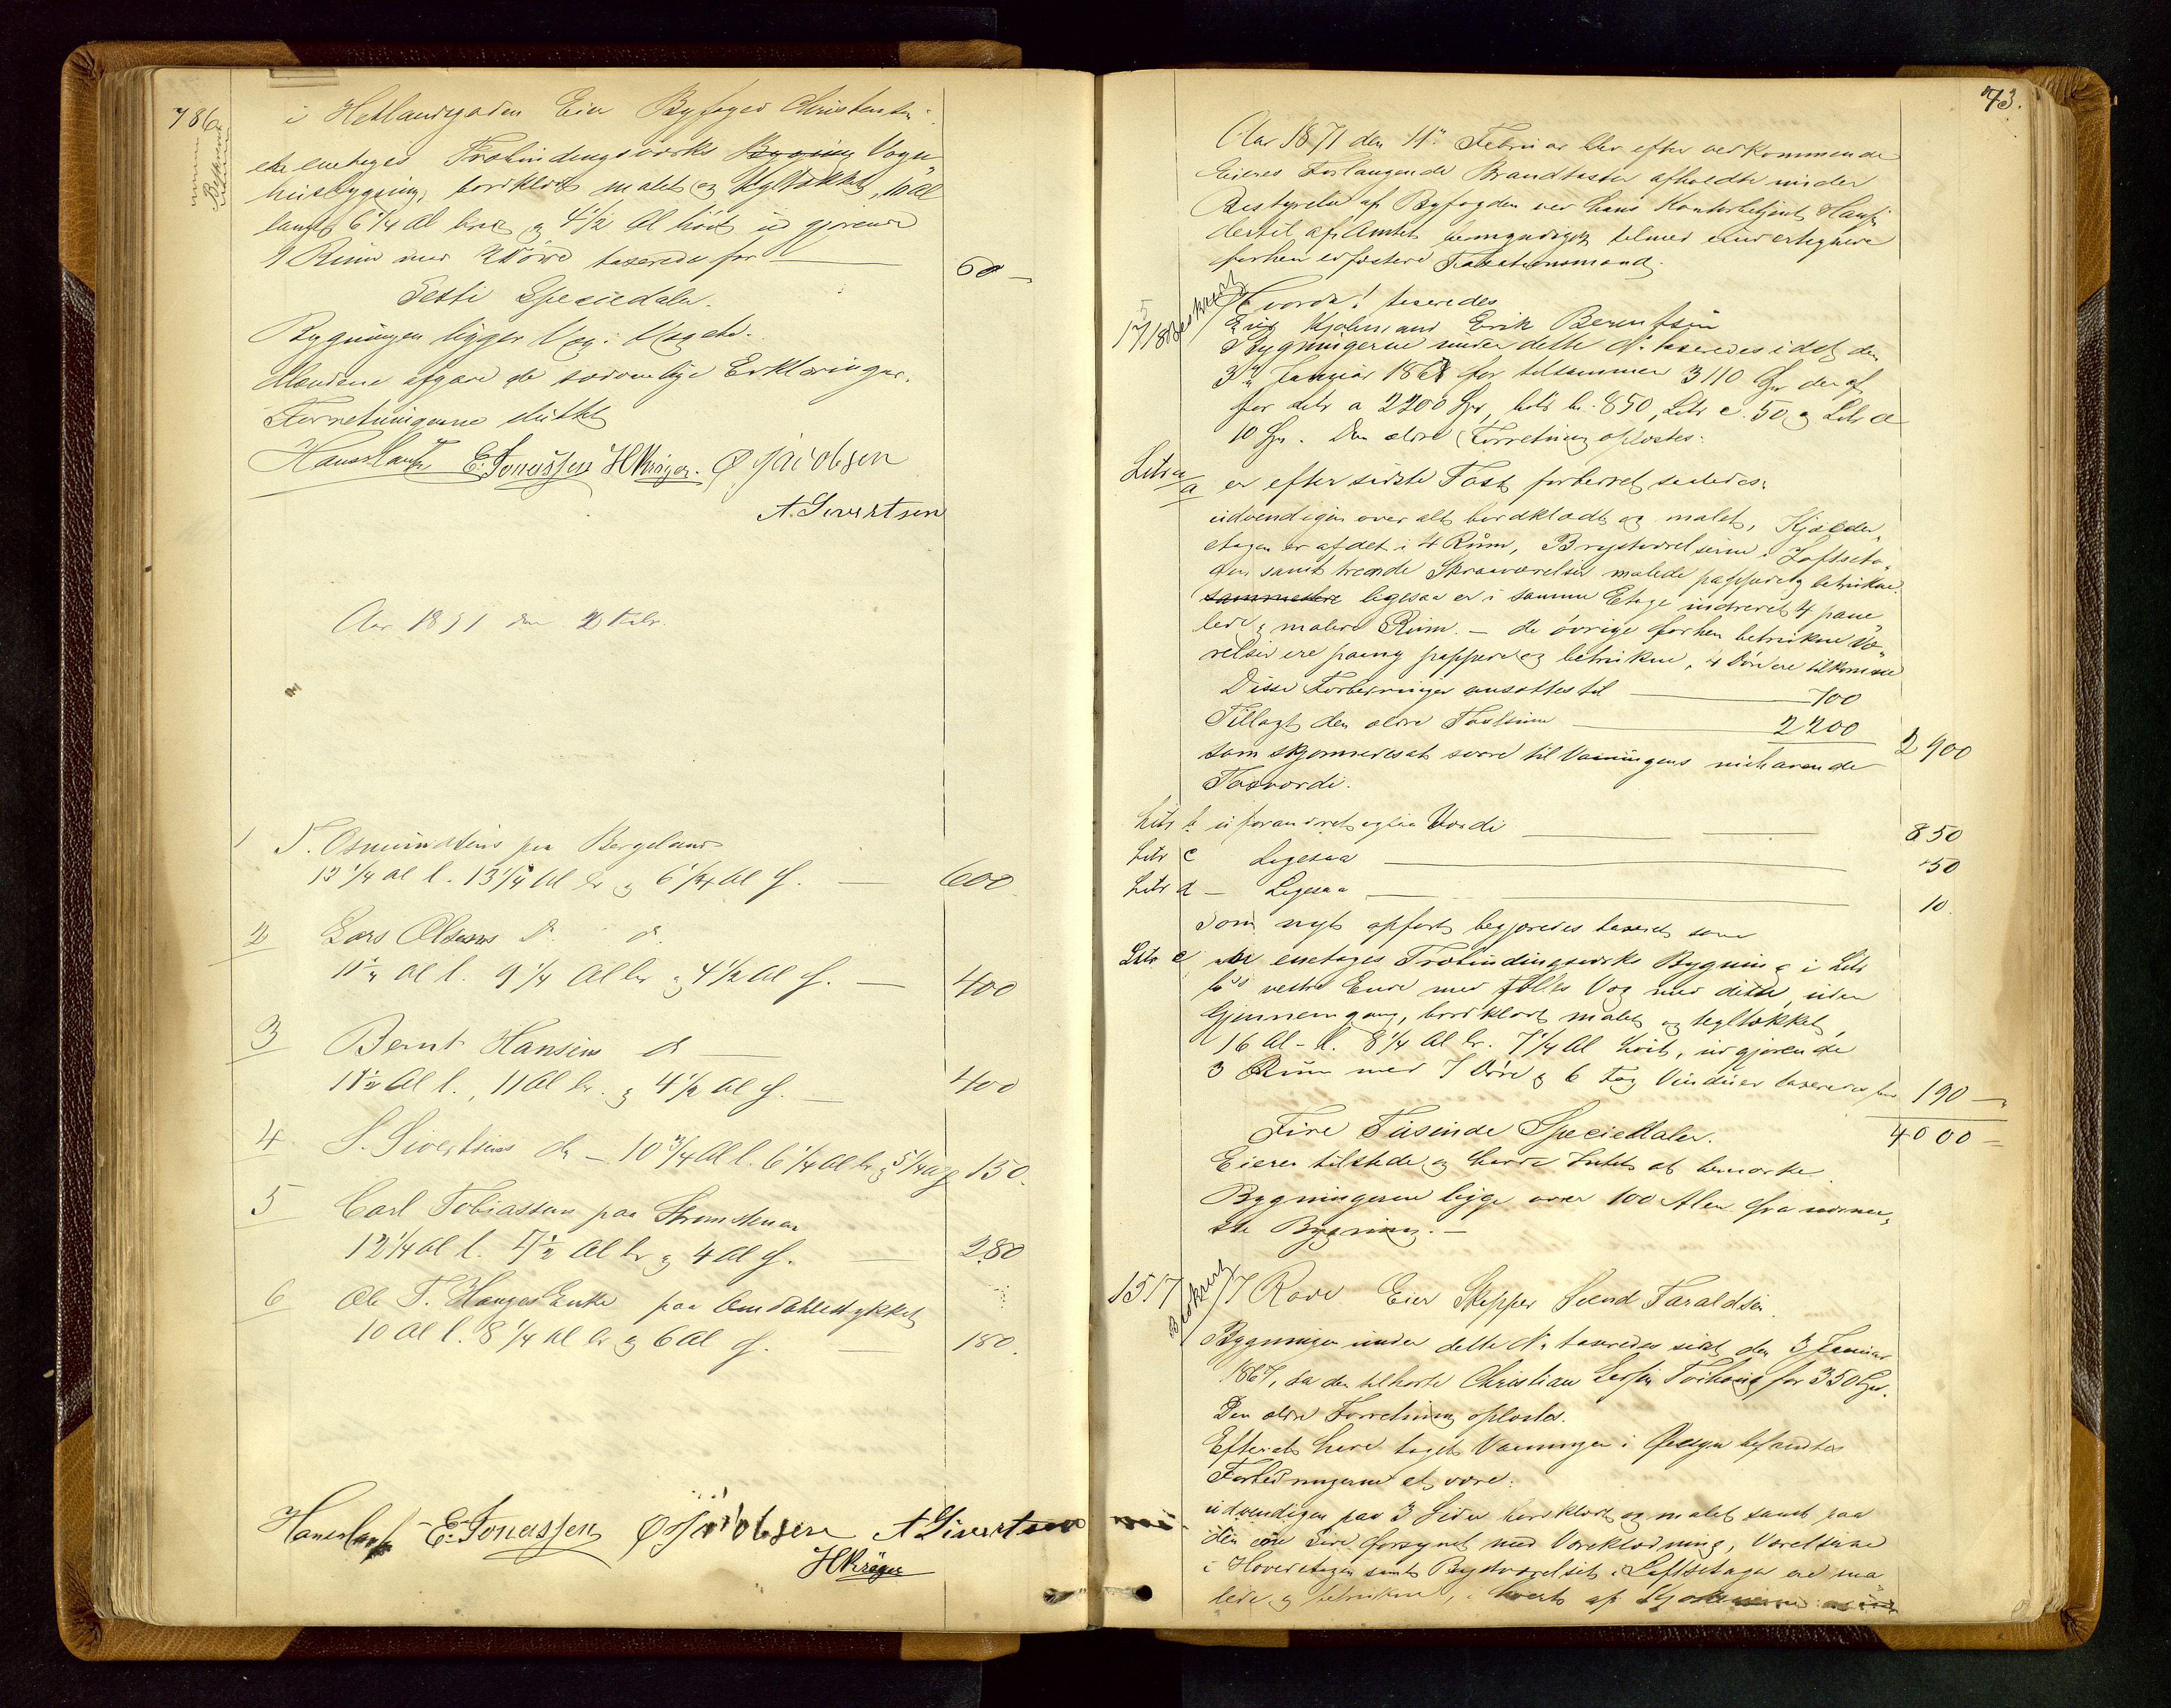 786
Beskrevet
i Hetlandsgaden Eier Byfoged Christensen
ete enetages Trobindingsværks Bygning Vogn
huusbygning, bordklædt malet og Tegltækket, 10 Al
langt 6 1/4 Al bred og 4 1/2 Al höit udgjørende
1 Rum med 2 Döre taxeredes for
60 —
Sexti Speciedaler.
Bygningen ligger
Mændene afgave de sædvanlige Erklæringer.
Forretningerne sluttet
Hans Hansen E. Jonassen HKrøger. O Jacobsen
A. Sivertsen
Aar 1871 den 2 Febr.
1 T. Osmundsens paa Bergeland
13 1/4 Al l. 13 1/4 Al br og 6 1/4 Al h. — 600
2 Lars Olsens do do
11 1/2 Al l. 9 1/4 Al br og 4 1/2 Al h. — 400
3 Bernt Hansens do
11 1/2 Al l., 11 Al br. og 4 1/2 Al h. — 400
4 S. Sivertsens do — 10 3/4 Al l. 6 1/4 Al br og 5 1/4 Al h 150.
5 Carl Tobiassens paa Strømstenen
12 1/4 Al l. 7 1/2 Al br og 4 Al h. — 280
6 Ole T. Hauges Enke paa Omdahlestykket
10 Al l. 8 1/4 Al br og 6 Al h. — 180.
E. Jonassen O Jacobsen A Sivertsen
HKrøger
73.
Aar 1871 den 11te Februar blev efter vedkommende
Eieres Forlangende Brandtaxter afholdte under
Bestyrelse af Byfogden ved hans Kontorbetjent Hansen
dertil af Amtet bemyndiget tilmed undertegnede
forhen edfæstede Taxationsmænd.
Hvorda! taxeredes
Beskrevet
Eier Kjøbmand Erik Berentsen
Bygningerne under dette No. taxeredes sidst den
3die Januar 1867 for tilsammen 3110 Spd deraf
for Litr a 2200 Spd, Litr b. 850, Litr c. 50 og Litr d
10 Spd. Den ældre Forretning oplæstes.
Litra a er efter sidste Taxt forberret saaledes:
udvendigen over alt bordklædt og malet, Kjælder-
etagen er afdelt i 4 Rum, Brystværelserne i Loftseta-
gen samt tvende Skraaværelser malede pappede og betrukne.
sammesteds ligesaa er i samme Etage indredet 4 pane
lede og malede Rum. — de övrige forhen betrukne Væ-
relser ere paany pappede og betrukne, 4 Döre ere tilkomne
Disse Forberringer ansættes til — 700
Tillagt den ældre Taxtsum — 2200
2900
som skjønnedes at svare til Vaaningens nuhavende
Taxværdi.
Litr b uforandret og lige Værdi — 850
Litr c Ligesaa — 50
Litr d — Ligesaa — 10.
Som nyt opfört begjæredes taxeret som
Litr e, en enetages Trobindingsværks Bygning i Litr
b's vestre Ende med fælles Væg med dette, uden
Gjennemgang, bordklædt malet og tegltækket,
16 Al – l. 8 1/4 Al br. 7 1/4 Al höit, udgjørende
3 Rum med 7 Döre og 6 Fag Vinduer taxeredes for 190 —
4000 —
Fire Tusinde Speciedaler.
Eieren tilstede og havde Intet at bemærke.
Bygningerne ligge over 100 Alen fra nærme-
ste Bygning. —
1517
Beskrevet
I Rove Eier Skipper Svend Taraldsen.
Bygningen under dette No. taxeredes sidst den 3 Januar
1867, da den tilhørte Christian for 350 Spd.
Den ældre Forretning oplæstes.
Efterat have taget Vaaningen i Øiesyn befandtes
Forbedringerne at være:
udvendigen paa 3 Sider bordklædt og malet samt paa
den ene Side forsynet med Vareklædning, Værelserne
i Hovedetagen samt Brystværelset i Loftsetagen ere ma
lede og betrukne, hvert af